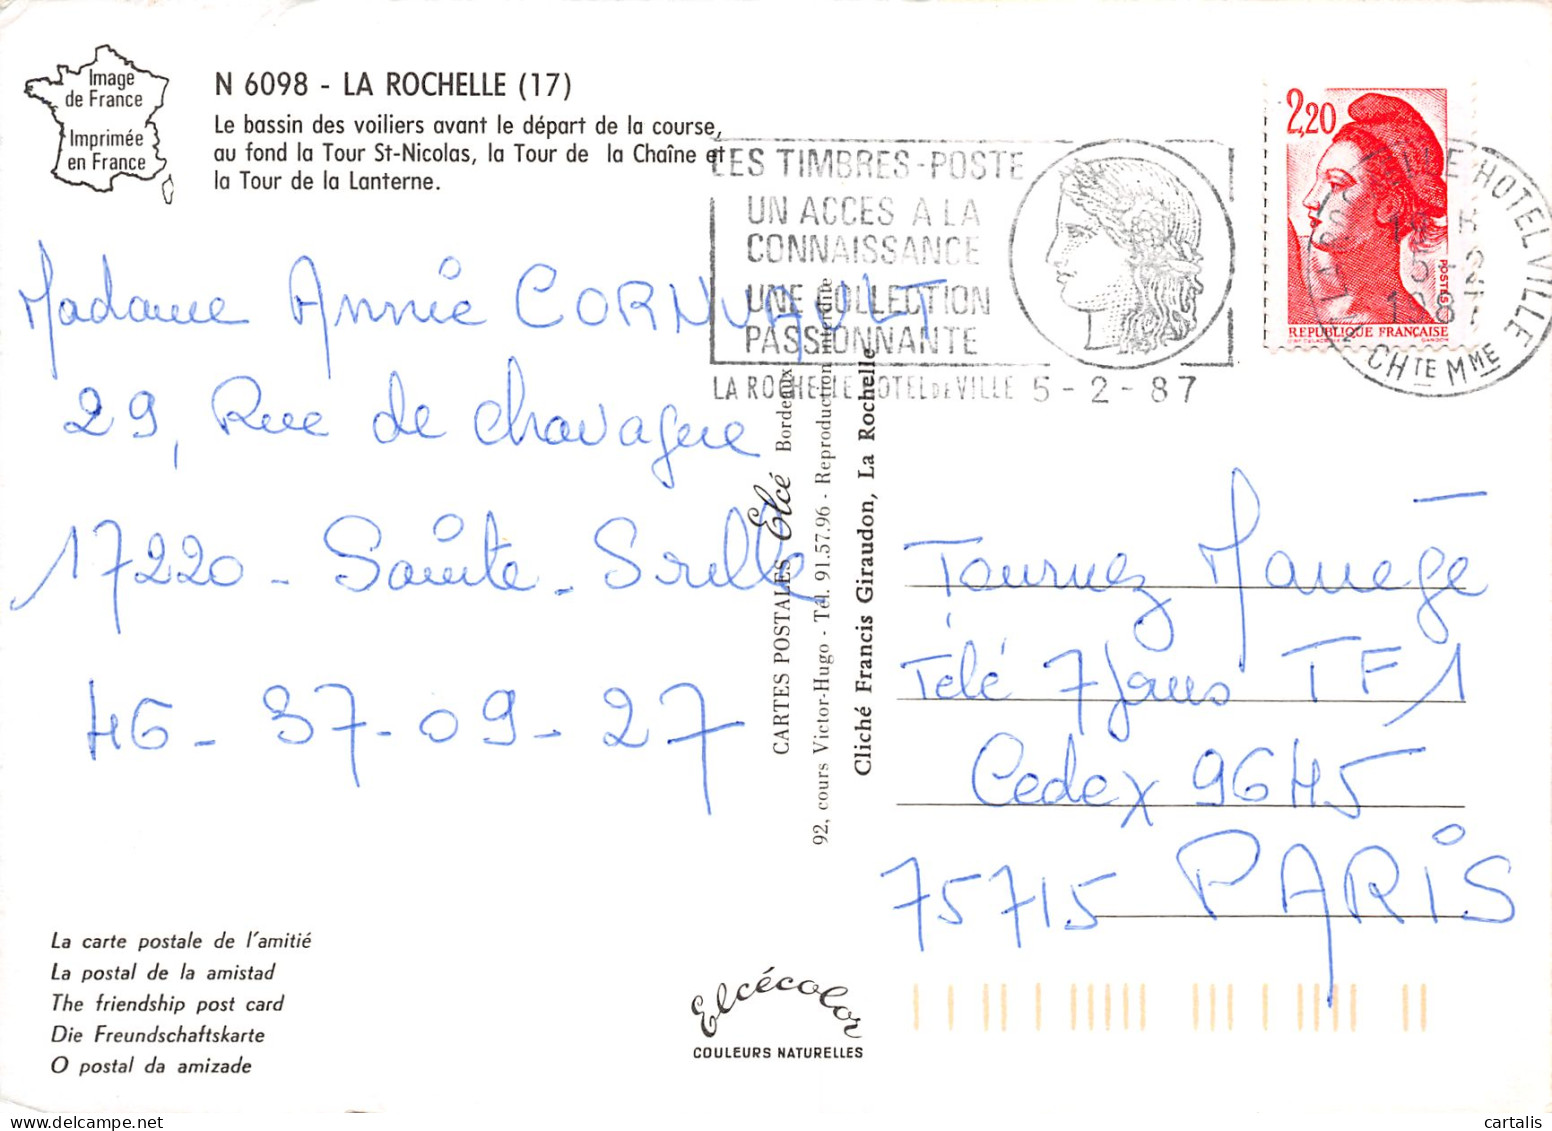 Image
de France
Imprimée
en France
N 6098 - LA ROCHELLE (17)
Le bassin des voiliers avant le départ de la course,
au fond la Tour St-Nicolas, la Tour de la Chaîne et
la Tour de la Lanterne.
LES TIMBRES-POSTE
UN ACCES A LA
CONNAISSANCE
UNE COLLECTION
PASSIONNANTE
LA ROCHELLE HOTEL DE VILLE 5-2-87
2,20
POSTES
REPUBLIQUE FRANÇAISE
GANDON
HOTEL VILLE
5-2
1987
CHTE MME
Madame Annie CORNUAULT
29, Rue de chavagne
17220 - Sainte - Soulle
46 - 37 - 09 - 27
CARTES POSTALES Elcé Bordeaux
92, cours Victor-Hugo - Tél. 91.57.96 - Reproduction interdite
Cliché Francis Giraudon, La Rochelle
Tournez Manège
Télé 7 Jours TF1
Cedex 9645
75715 PARIS
La carte postale de l'amitié
La postal de la amistad
The friendship post card
Die Freundschaftskarte
O postal da amizade
Elcécolor
COULEURS NATURELLES
cartalis